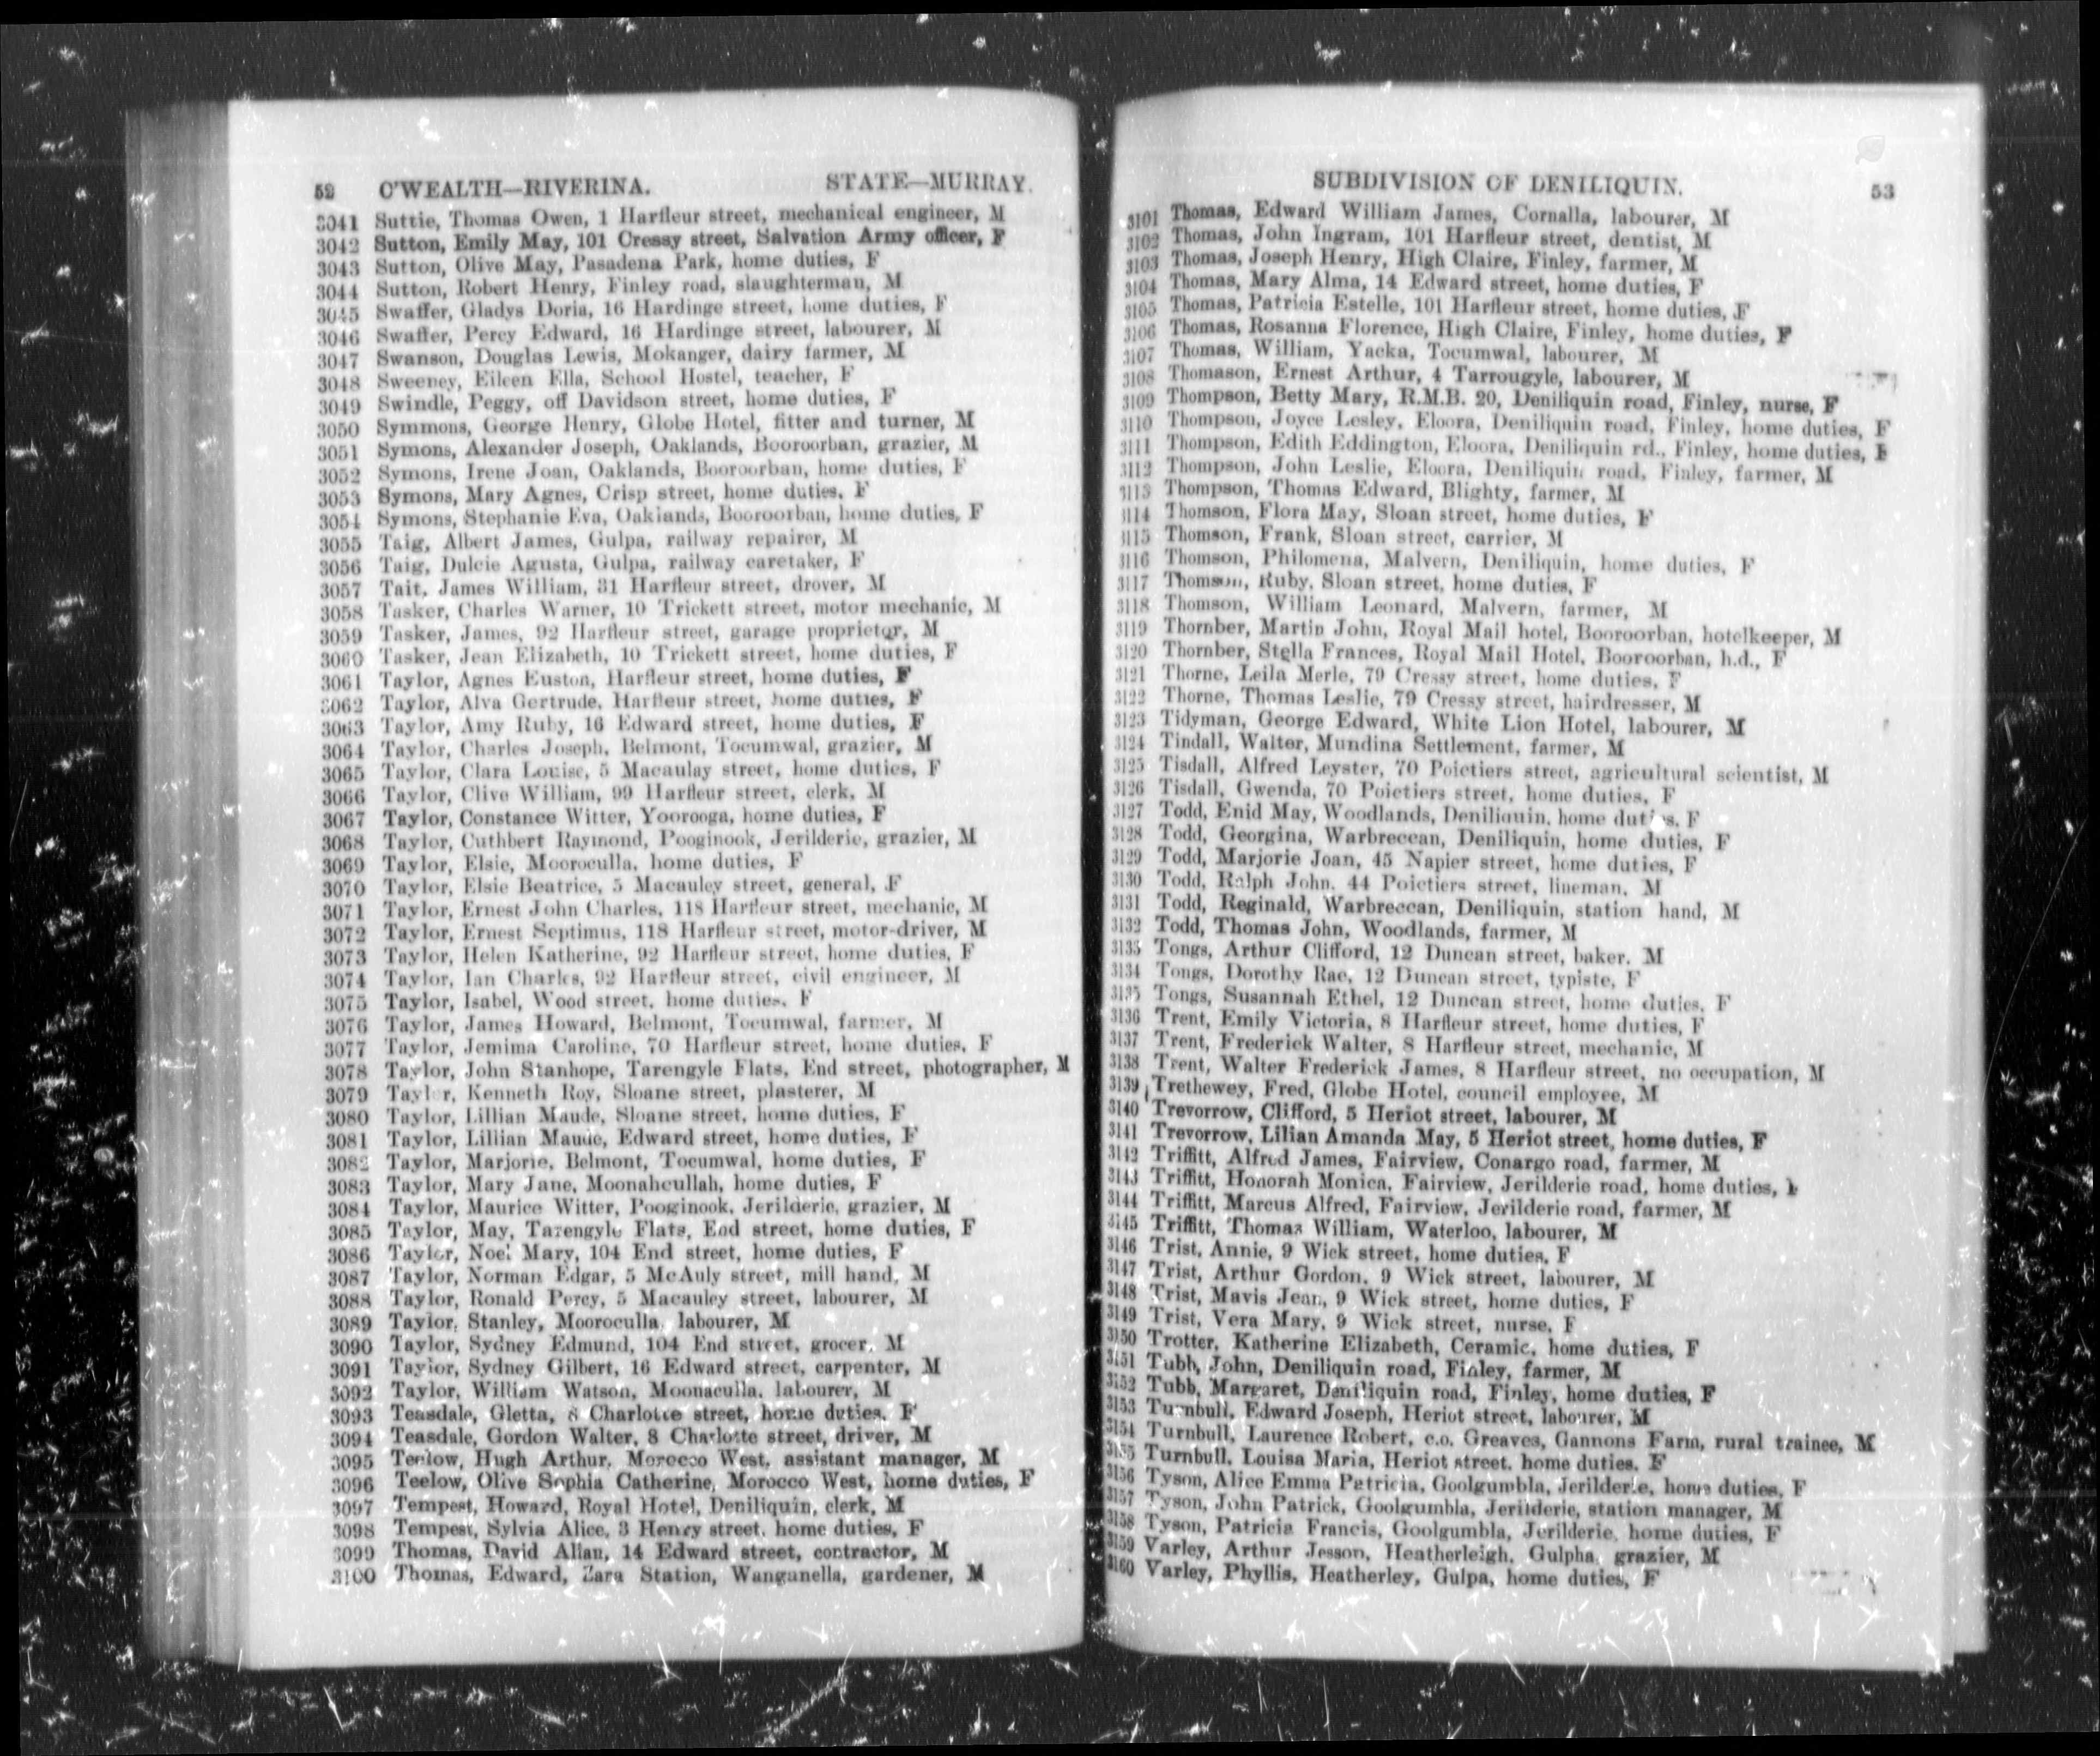 52 C'WEALTH—RIVERINA. STATE—MURRAY.
3041 Suttie, Thomas Owen, 1 Harfleur street, mechanical engineer, M
3042 Sutton, Emily May, 101 Cressy street, Salvation Army officer, F
3043 Sutton, Olive May, Pasadena Park, home duties, F
3044 Sutton, Robert Henry, Finley road, slaughterman, M
3045 Swaffer, Gladys Doria, 16 Hardinge street, home duties, F
3046 Swaffer, Percy Edward, 16 Hardinge street, labourer, M
3047 Swanson, Douglas Lewis, Mokanger, dairy farmer, M
3048 Sweeney, Eileen Ella, School Hostel, teacher, F
3049 Swindle, Peggy, off Davidson street, home duties, F
3050 Symmons, George Henry, Globe Hotel, fitter and turner, M
3051 Symons, Alexander Joseph, Oaklands, Booroorban, grazier, M
3052 Symons, Irene Joan, Oaklands, Booroorban, home duties, F
3053 Symons, Mary Agnes, Crisp street, home duties, F
3054 Symons, Stephanie Eva, Oaklands, Booroorban, home duties, F
3055 Taig, Albert James, Gulpa, railway repairer, M
3056 Taig, Dulcie Agusta, Gulpa, railway caretaker, F
3057 Tait, James William, 31 Harfleur street, drover, M
3058 Tasker, Charles Warner, 10 Trickett street, motor mechanic, M
3059 Tasker, James, 92 Harfleur street, garage proprietor, M
3060 Tasker, Jean Elizabeth, 10 Trickett street, home duties, F
3061 Taylor, Agnes Euston, Harfleur street, home duties, F
3062 Taylor, Alva Gertrude, Harfleur street, home duties, F
3063 Taylor, Amy Ruby, 16 Edward street, home duties, F
3064 Taylor, Charles Joseph, Belmont, Tocumwal, grazier, M
3065 Taylor, Clara Louise, 5 Macaulay street, home duties, F
3066 Taylor, Clive William, 99 Harfleur street, clerk, M
3067 Taylor, Constance Witter, Yoorooga, home duties, F
3068 Taylor, Cuthbert Raymond, Pooginook, Jerilderie, grazier, M
3069 Taylor, Elsie, Mooroculla, home duties, F
3070 Taylor, Elsie Beatrice, 5 Macauley street, general, F
3071 Taylor, Ernest John Charles, 118 Harfleur street, mechanic, M
3072 Taylor, Ernest Septimus, 118 Harfleur street, motor-driver, M
3073 Taylor, Helen Katherine, 92 Harfleur street, home duties, F
3074 Taylor, Ian Charles, 92 Harfleur street, civil engineer, M
3075 Taylor, Isabel, Wood street, home duties, F
3076 Taylor, James Howard, Belmont, Tocumwal, farmer, M
3077 Taylor, Jemima Caroline, 70 Harfleur street, home duties, F
3078 Taylor, John Stanhope, Tarengyle Flats, End street, photographer, M
3079 Taylor, Kenneth Roy, Sloane street, plasterer, M
3080 Taylor, Lillian Maude, Sloane street, home duties, F
3081 Taylor, Lillian Maude, Edward street, home duties, F
3082 Taylor, Marjorie, Belmont, Tocumwal, home duties, F
3083 Taylor, Mary Jane, Moonahcullah, home duties, F
3084 Taylor, Maurice Witter, Pooginook, Jerilderie, grazier, M
3085 Taylor, May, Tarengyle Flats, End street, home duties, F
3086 Taylor, Noel Mary, 104 End street, home duties, F
3087 Taylor, Norman Edgar, 5 McAuly street, mill hand, M
3088 Taylor, Ronald Percy, 5 Macauley street, labourer, M
3089 Taylor, Stanley, Mooroculla, labourer, M
3090 Taylor, Sydney Edmund, 104 End street, grocer, M
3091 Taylor, Sydney Gilbert, 16 Edward street, carpenter, M
3092 Taylor, William Watson, Moonaculla, labourer, M
3093 Teasdale, Gletta, 8 Charlotte street, home duties, F
3094 Teasdale, Gordon Walter, 8 Charlotte street, driver, M
3095 Teelow, Hugh Arthur, Morocco West, assistant manager, M
3096 Teelow, Olive Sophia Catherine, Morocco West, home duties, F
3097 Tempest, Howard, Royal Hotel, Deniliquin, clerk, M
3098 Tempest, Sylvia Alice, 3 Henry street, home duties, F
3099 Thomas, David Allan, 14 Edward street, contractor, M
3100 Thomas, Edward, Zara Station, Wanganella, gardener, M
SUBDIVISION OF DENILIQUIN. 53
3101 Thomas, Edward William James, Cornalla, labourer, M
3102 Thomas, John Ingram, 101 Harfleur street, dentist, M
3103 Thomas, Joseph Henry, High Claire, Finley, farmer, M
3104 Thomas, Mary Alma, 14 Edward street, home duties, F
3105 Thomas, Patricia Estelle, 101 Harfleur street, home duties, F
3106 Thomas, Rosanna Florence, High Claire, Finley, home duties, F
3107 Thomas, William, Yacka, Tocumwal, labourer, M
3108 Thomason, Ernest Arthur, 4 Tarrougyle, labourer, M
3109 Thompson, Betty Mary, R.M.B. 20, Deniliquin road, Finley, nurse, F
3110 Thompson, Joyce Lesley, Eloora, Deniliquin road, Finley, home duties, F
3111 Thompson, Edith Eddington, Eloora, Deniliquin rd., Finley, home duties, F
3112 Thompson, John Leslie, Eloora, Deniliquin road, Finley, farmer, M
3113 Thompson, Thomas Edward, Blighty, farmer, M
3114 Thomson, Flora May, Sloan street, home duties, F
3115 Thomson, Frank, Sloan street, carrier, M
3116 Thomson, Philomena, Malvern, Deniliquin, home duties, F
3117 Thomson, Ruby, Sloan street, home duties, F
3118 Thomson, William Leonard, Malvern, farmer, M
3119 Thornber, Martin John, Royal Mail hotel, Booroorban, hotelkeeper, M
3120 Thornber, Stella Frances, Royal Mail Hotel, Booroorban, h.d., F
3121 Thorne, Leila Merle, 79 Cressy street, home duties, F
3122 Thorne, Thomas Leslie, 79 Cressy street, hairdresser, M
3123 Tidyman, George Edward, White Lion Hotel, labourer, M
3124 Tindall, Walter, Mundina Settlement, farmer, M
3125 Tisdall, Alfred Leyster, 70 Poictiers street, agricultural scientist, M
3126 Tisdall, Gwenda, 70 Poictiers street, home duties, F
3127 Todd, Enid May, Woodlands, Deniliquin, home duties, F
3128 Todd, Georgina, Warbreccan, Deniliquin, home duties, F
3129 Todd, Marjorie Joan, 45 Napier street, home duties, F
3130 Todd, Ralph John, 44 Poictiers street, lineman, M
3131 Todd, Reginald, Warbreccan, Deniliquin, station hand, M
3132 Todd, Thomas John, Woodlands, farmer, M
3133 Tongs, Arthur Clifford, 12 Duncan street, baker, M
3134 Tongs, Dorothy Rae, 12 Duncan street, typiste, F
3135 Tongs, Susannah Ethel, 12 Duncan street, home duties, F
3136 Trent, Emily Victoria, 8 Harfleur street, home duties, F
3137 Trent, Frederick Walter, 8 Harfleur street, mechanic, M
3138 Trent, Walter Frederick James, 8 Harfleur street, no occupation, M
3139 Trethewey, Fred, Globe Hotel, council employee, M
3140 Trevorrow, Clifford, 5 Heriot street, labourer, M
3141 Trevorrow, Lilian Amanda May, 5 Heriot street, home duties, F
3142 Triffitt, Alfred James, Fairview, Conargo road, farmer, M
3143 Triffitt, Honorah Monica, Fairview, Jerilderie road, home duties, F
3144 Triffitt, Marcus Alfred, Fairview, Jerilderie road, farmer, M
3145 Triffitt, Thomas William, Waterloo, labourer, M
3146 Trist, Annie, 9 Wick street, home duties, F
3147 Trist, Arthur Gordon, 9 Wick street, labourer, M
3148 Trist, Mavis Jean, 9 Wick street, home duties, F
3149 Trist, Vera Mary, 9 Wick street, nurse, F
3150 Trotter, Katherine Elizabeth, Ceramic, home duties, F
3151 Tubb, John, Deniliquin road, Finley, farmer, M
3152 Tubb, Margaret, Deniliquin road, Finley, home duties, F
3153 Turnbull, Edward Joseph, Heriot street, labourer, M
3154 Turnbull, Laurence Robert, c.o. Greaves, Gannons Farm, rural trainee, M
3155 Turnbull, Louisa Maria, Heriot street, home duties, F
3156 Tyson, Alice Emma Patricia, Goolgumbla, Jerilderie, home duties, F
3157 Tyson, John Patrick, Goolgumbla, Jerilderie, station manager, M
3158 Tyson, Patricia Francis, Goolgumbla, Jerilderie, home duties, F
3159 Varley, Arthur Jesson, Heatherleigh, Gulpha, grazier, M
3160 Varley, Phyllis, Heatherley, Gulpa, home duties, F